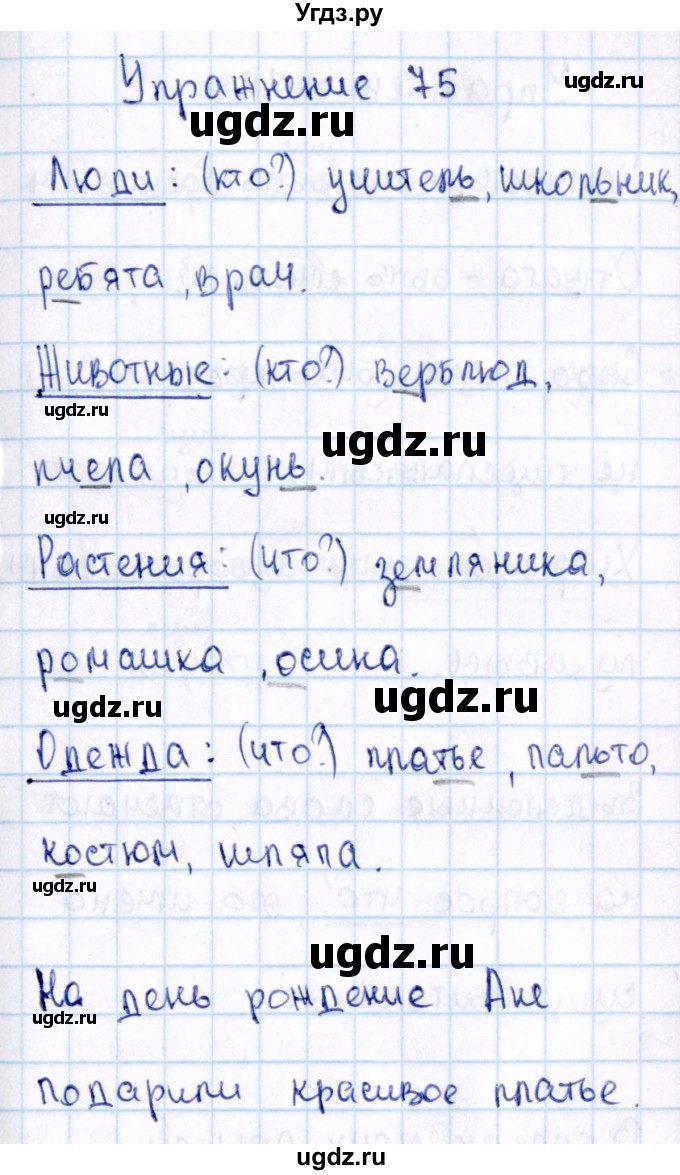 Угдз.ру
Упражнение 75
ugdz.ru
ugdz.ru
Люди: (кто?) учитель, школьник,
ребята, врач.
ugdz.ru
Животные: (кто?) верблюд,
ugdz.ru
ugdz.ru
пчела, окунь.
ugdz.ru
Растения: (что?) земляника,
ромашка, осина.
ugdz.ru
ugdz.ru
Одежда: (что?) платье, пальто,
костюм, шляпа.
ugdz.ru
ugdz.ru
На день рождение Ане
ugdz.ru
подарили красивое платье.
ugdz.ru
ugdz.ru